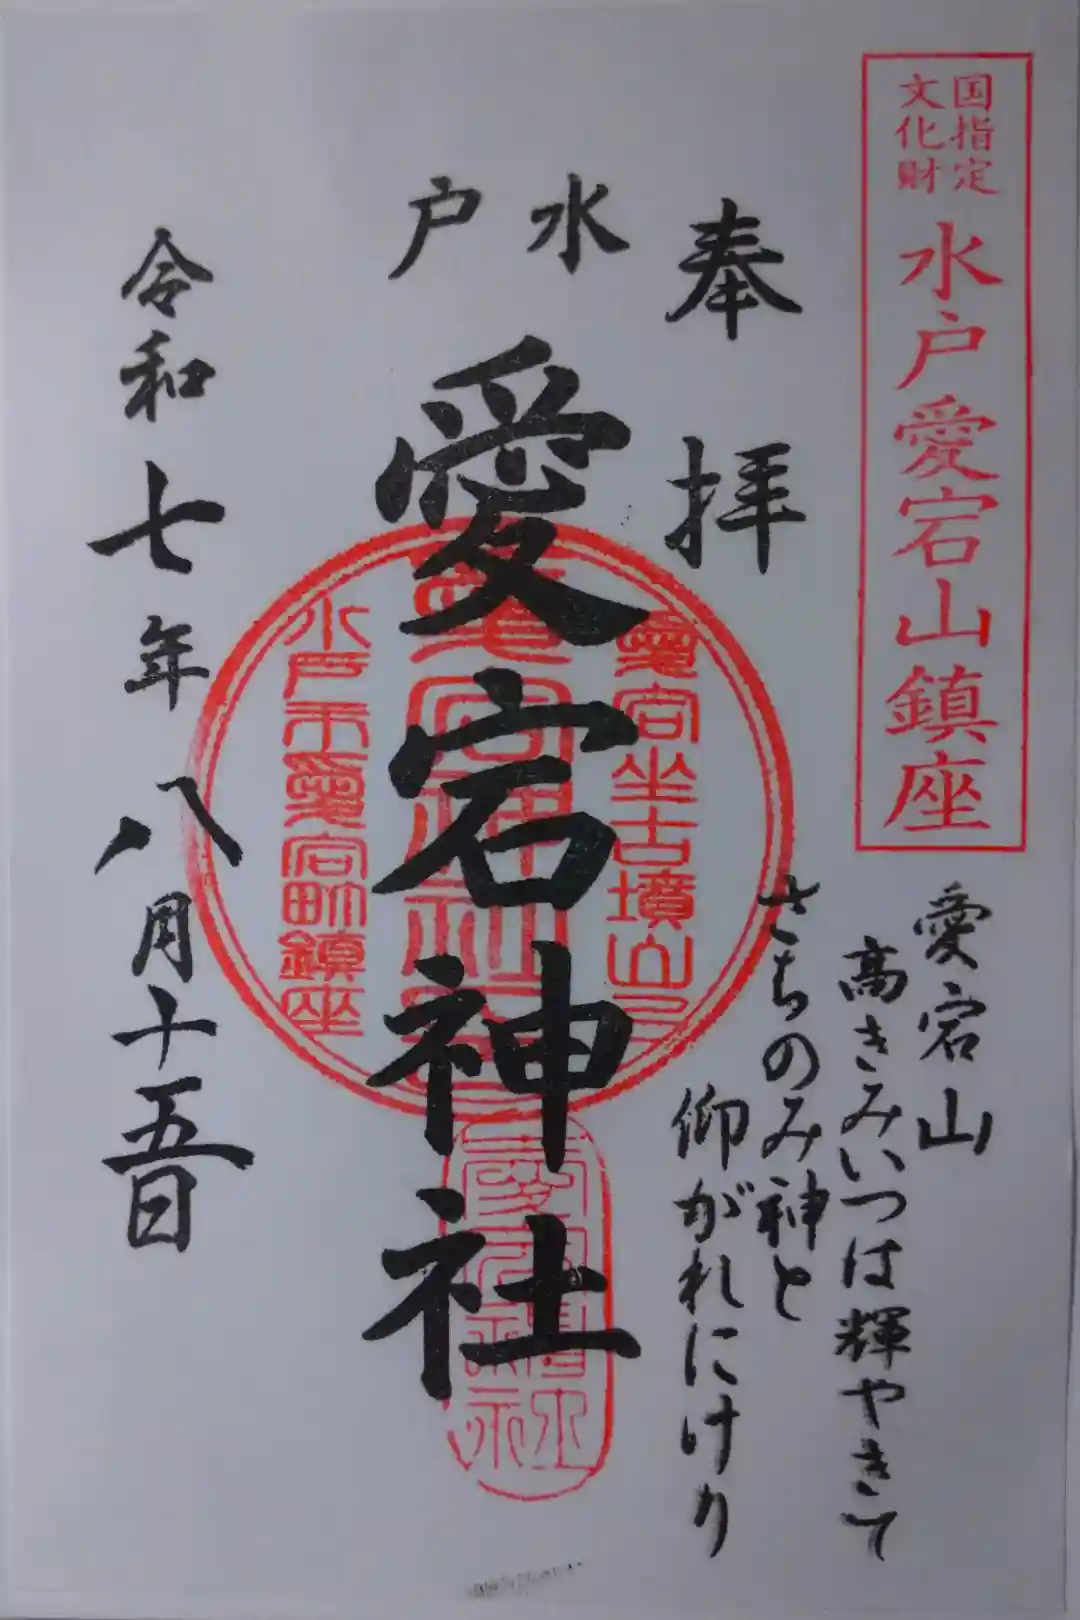 国指定
文化財
水戸愛宕山鎮座
愛宕山
高きみいつは輝やきて
さちのみ神と
仰がれにけり
奉拝
愛宕坐古墳山上
水戸
愛宕神社
水戸市愛宕町鎮座
愛宕神社
令和七年八月十五日